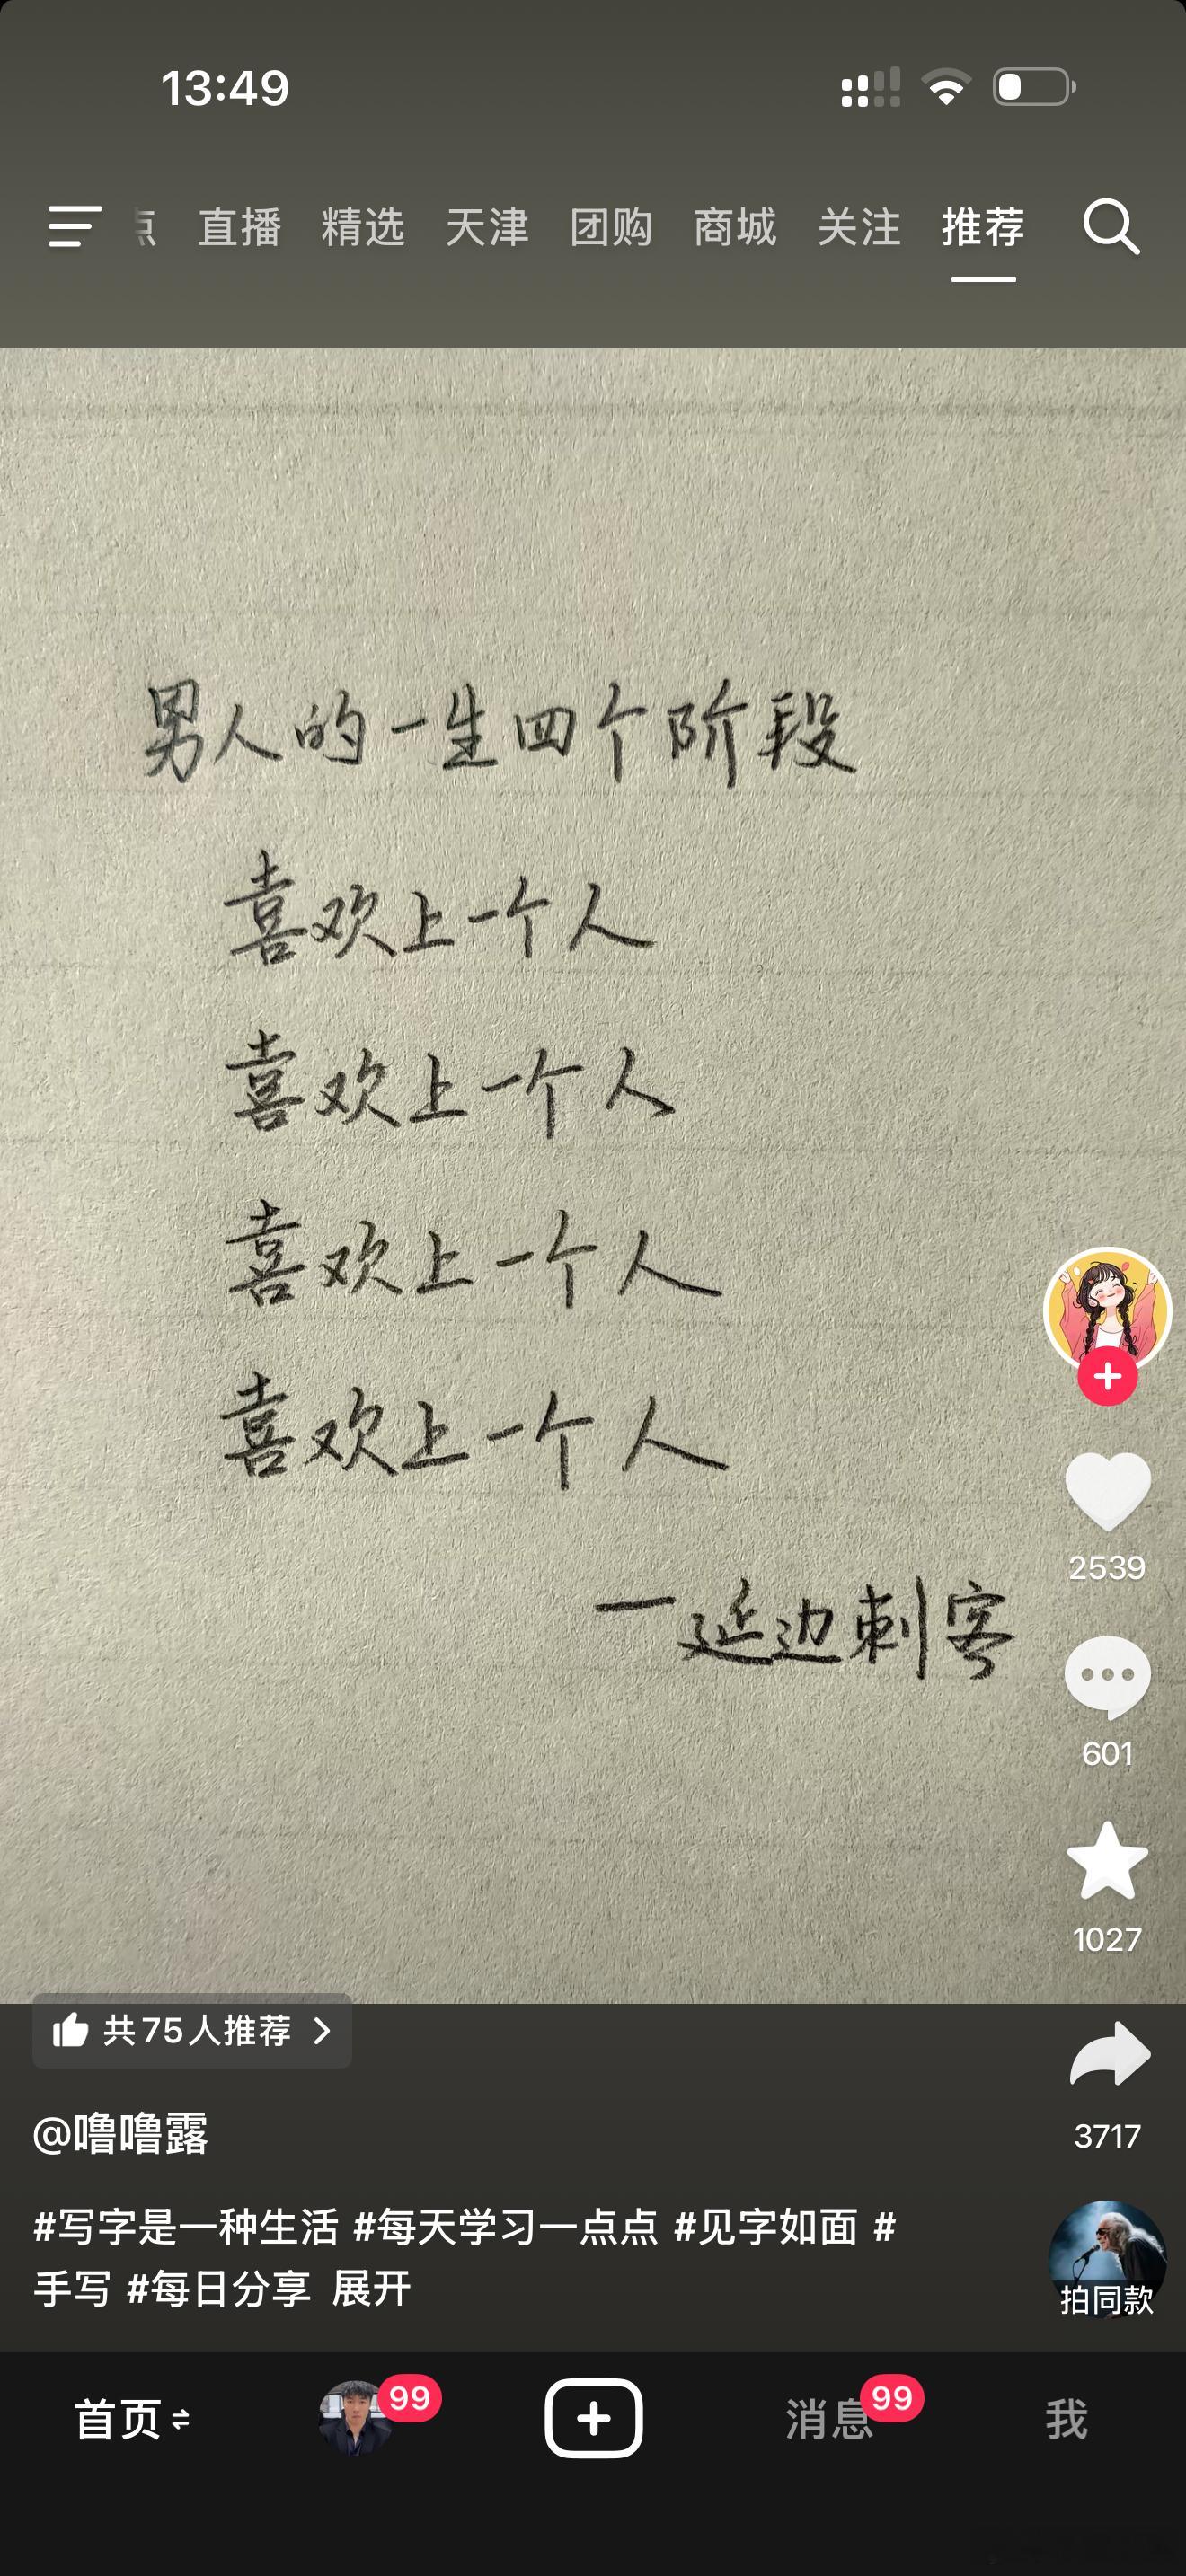 13:49
点 直播 精选 天津 团购 商城 关注 推荐
男人的一生四个阶段
喜欢上一个人
喜欢上一个人
喜欢上一个人
喜欢上一个人
一延边刺客
2539
601
1027
共75人推荐
3717
@噜噜露
#写字是一种生活 #每天学习一点点 #见字如面 #
手写 #每日分享 展开
拍同款
首页 99 消息 99 我